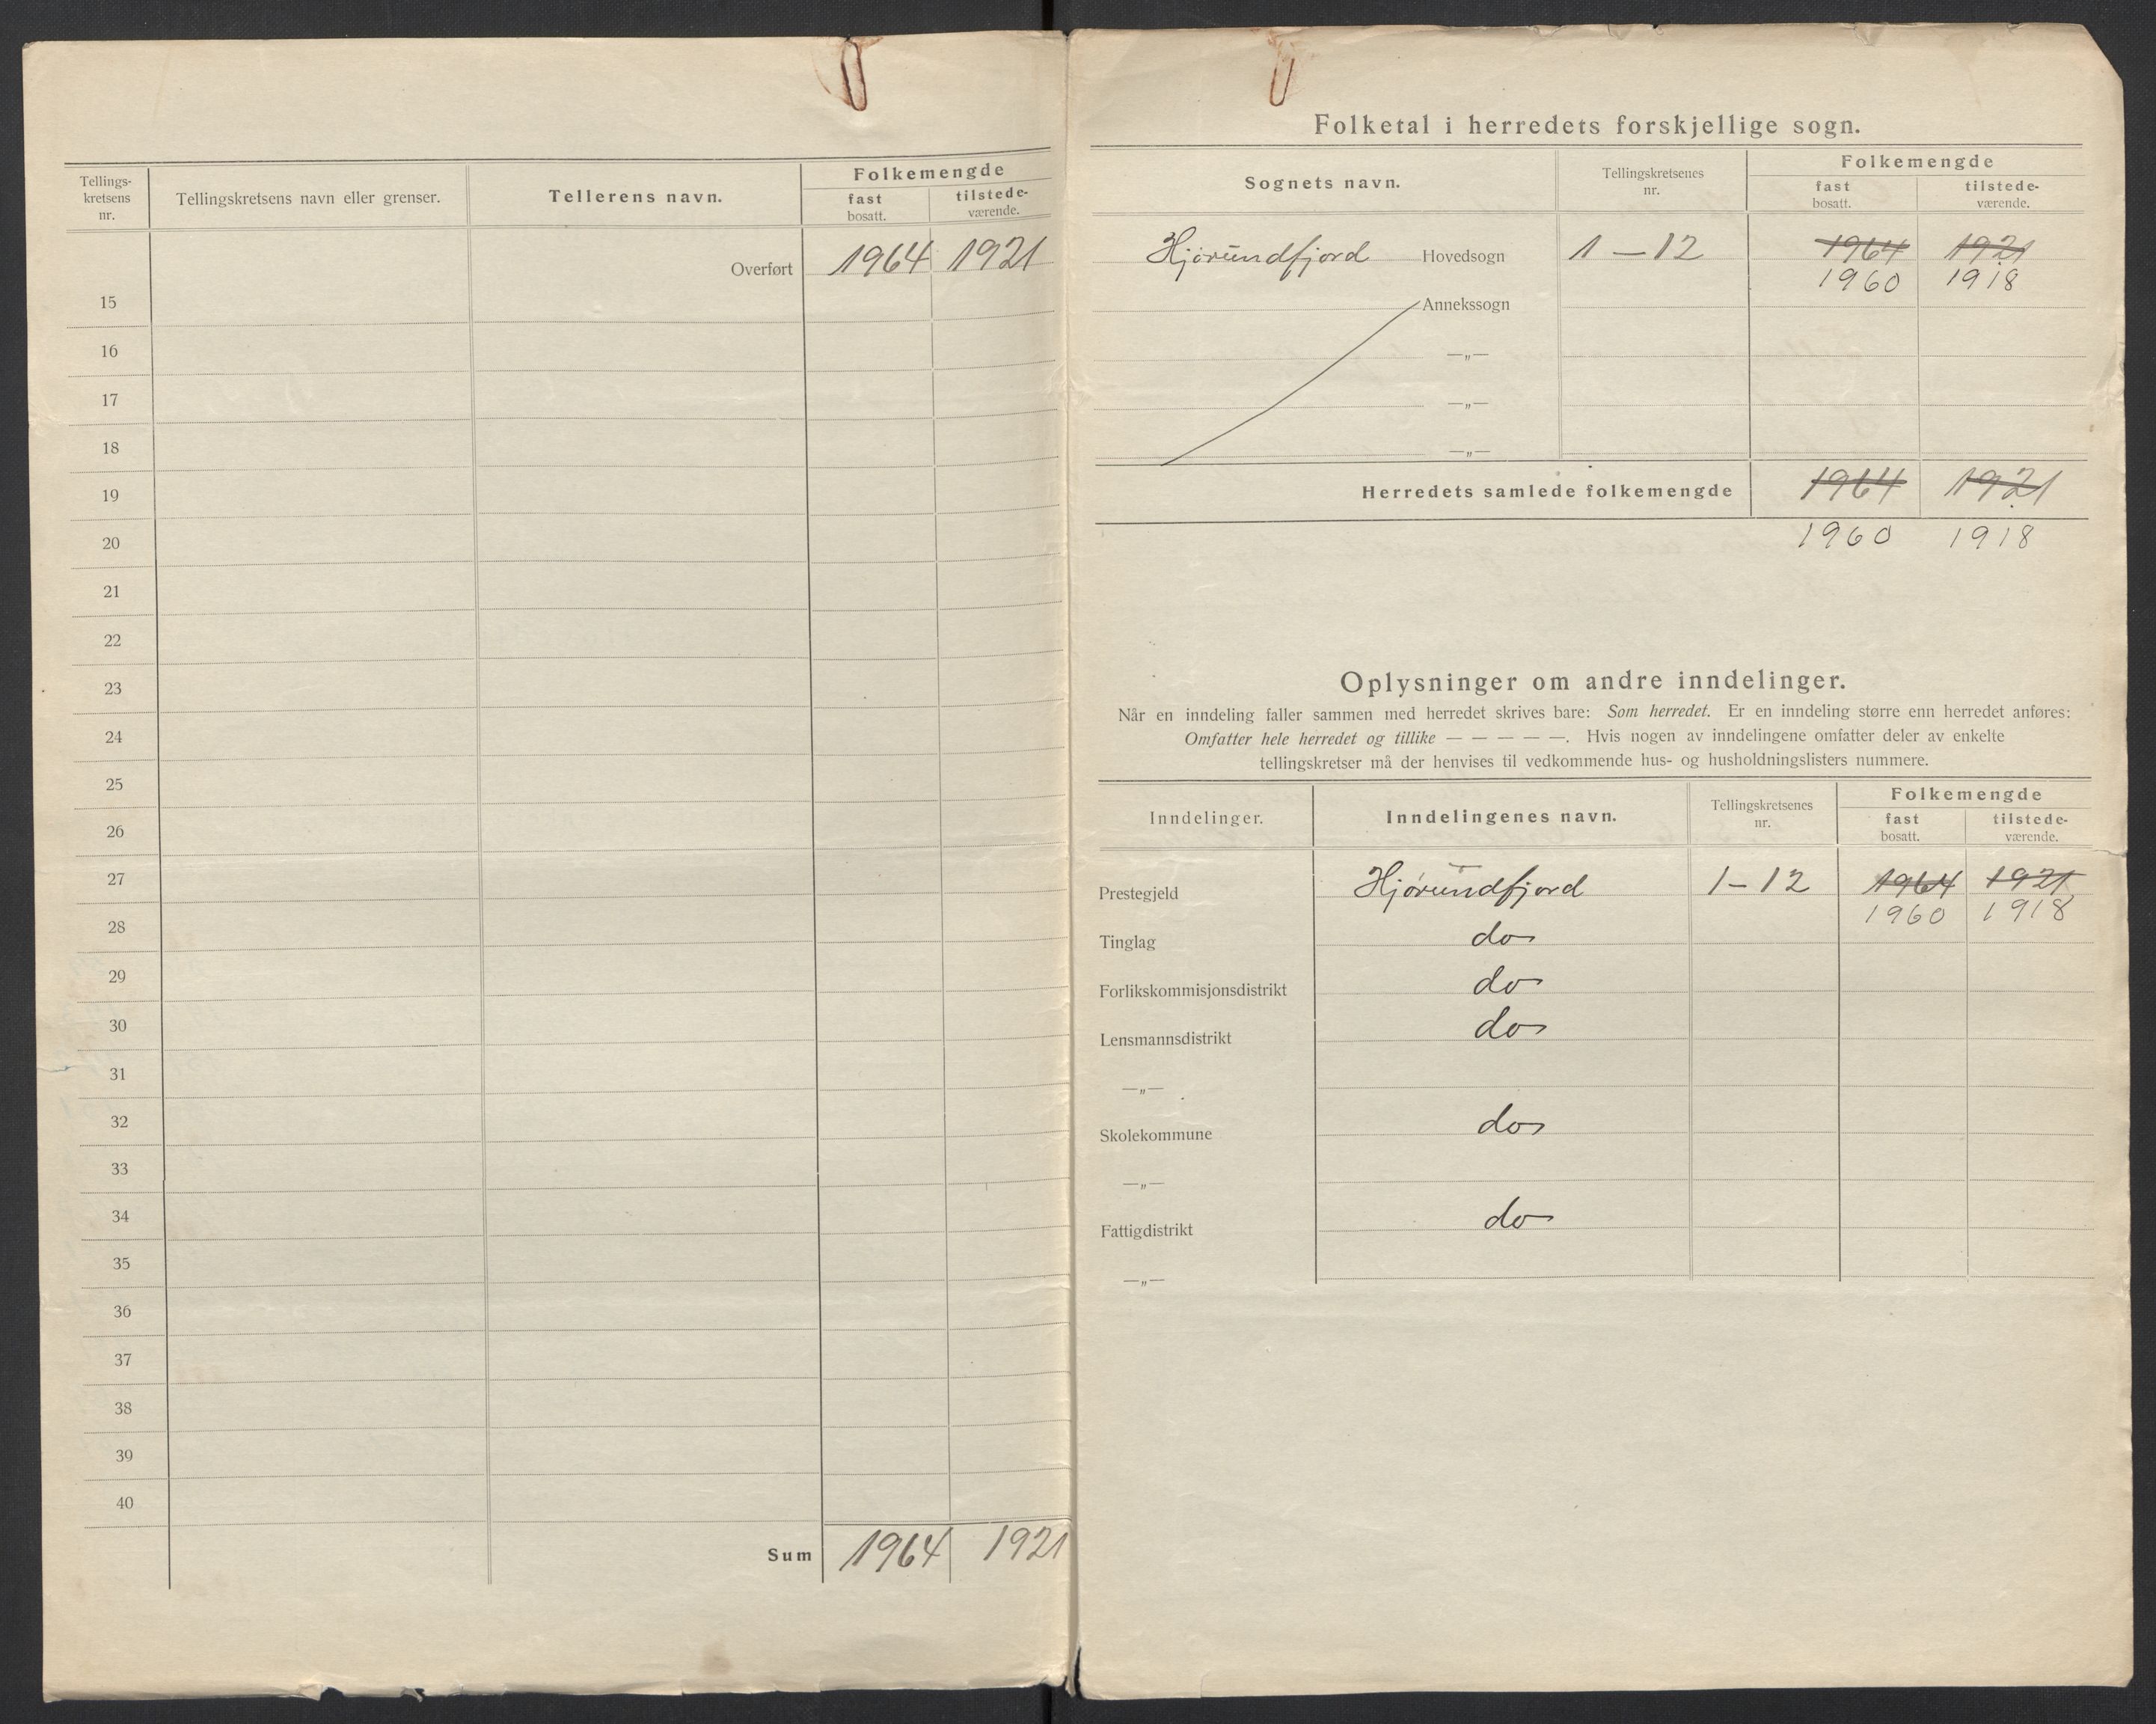 Tellings-
kretsens
nr.
Tellingskretsens navn eller grenser.
Tellerens navn.
Folkemengde
fast
bosatt.
tilstede-
værende.
Overført 1964 1921
15
16
17
18
19
20
21
22
23
24
25
26
27
28
29
30
31
32
33
34
35
36
37
38
39
40
Sum 1964 1921
Folketal i herredets forskjellige sogn.
Sognets navn.
Tellingskretsenes
nr.
Folkemengde
fast
bosatt.
tilstede-
værende.
Hjørundfjord Hovedsogn 1 — 12 1964 1921
1960 1918
Annekssogn
—„—
—„—
—„—
Herredets samlede folkemengde 1964 1921
1960 1918
Oplysninger om andre inndelinger.
Når en inndeling faller sammen med herredet skrives bare: Som herredet. Er en inndeling større enn herredet anføres:
Omfatter hele herredet og tillike — — — — —. Hvis nogen av inndelingene omfatter deler av enkelte
tellingskretser må der henvises til vedkommende hus- og husholdningslisters nummere.
Inndelinger.
Inndelingenes navn.
Tellingskretsenes
nr.
Folkemengde
fast
bosatt.
tilstede-
værende.
Prestegjeld Hjørundfjord 1 — 12 1964 1921
1960 1918
Tinglag do
Forlikskommisjonsdistrikt do
Lensmannsdistrikt do
—„—
Skolekommune do
—„—
Fattigdistrikt do
—„—